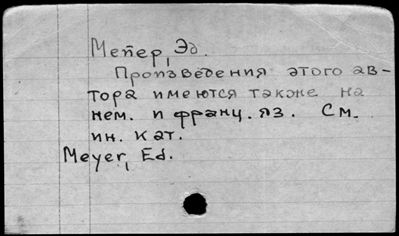 Мейер, Эд.
Произведения этого ав-
тора имеются также на
нем. и франц. яз. См.
ин. кат.
Meyer, Ed.